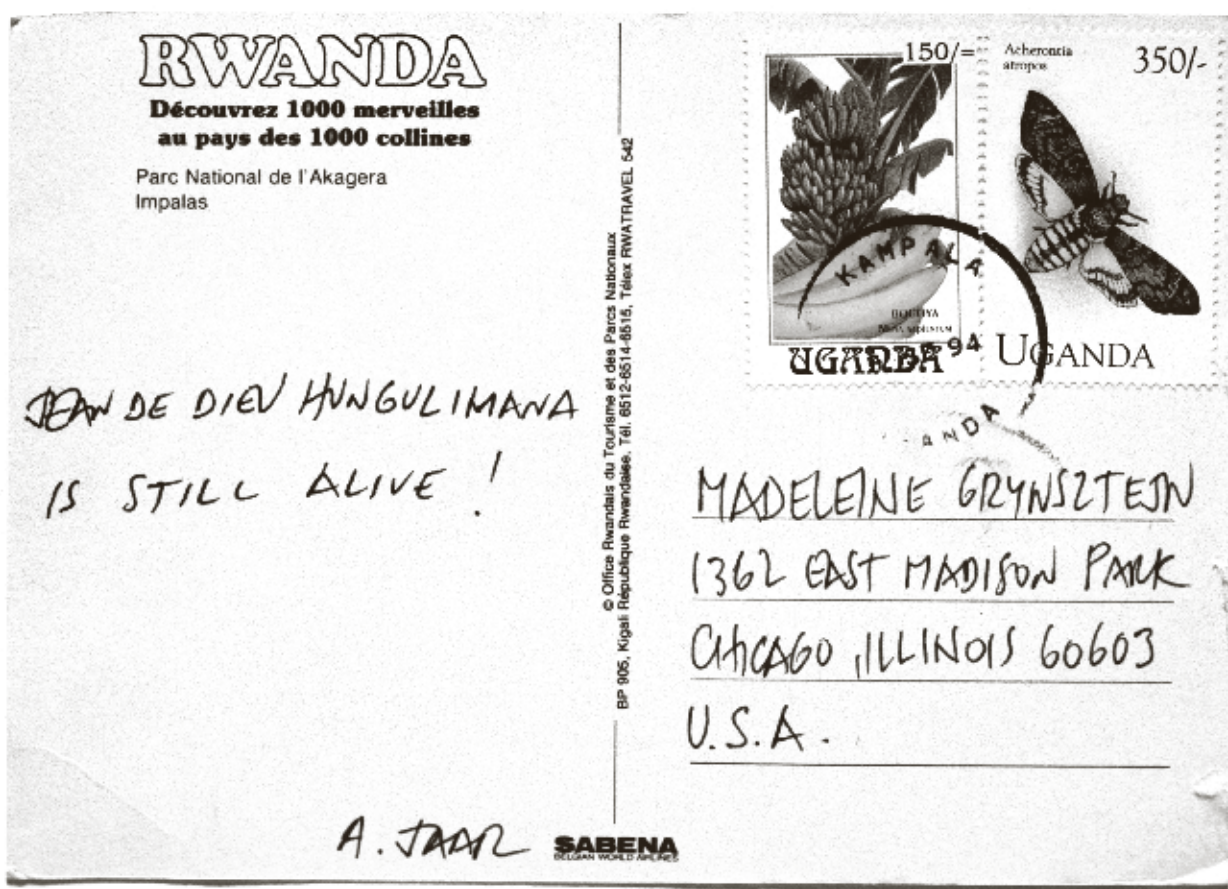 RWANDA
Découvrez 1000 merveilles
au pays des 1000 collines
Parc National de l'Akagera
Impalas
JEAN DE DIEU HUNGULIMANA
IS STILL ALIVE !
A. JAAR
© Office Rwandais du Tourisme et des Parcs Nationaux
BP 905, Kigali République Rwandaise, Tél. 6512-6514-6515, Télex RWATRAVEL 542
SABENA
BELGIAN WORLD AIRLINES
150/=
UGANDA
Acherontia
atropos
350/-
UGANDA
KAMPALA
94
ANDA
MADELEINE GRYNSZTEJN
1362 EAST MADISON PARK
CHICAGO, ILLINOIS 60603
U.S.A.